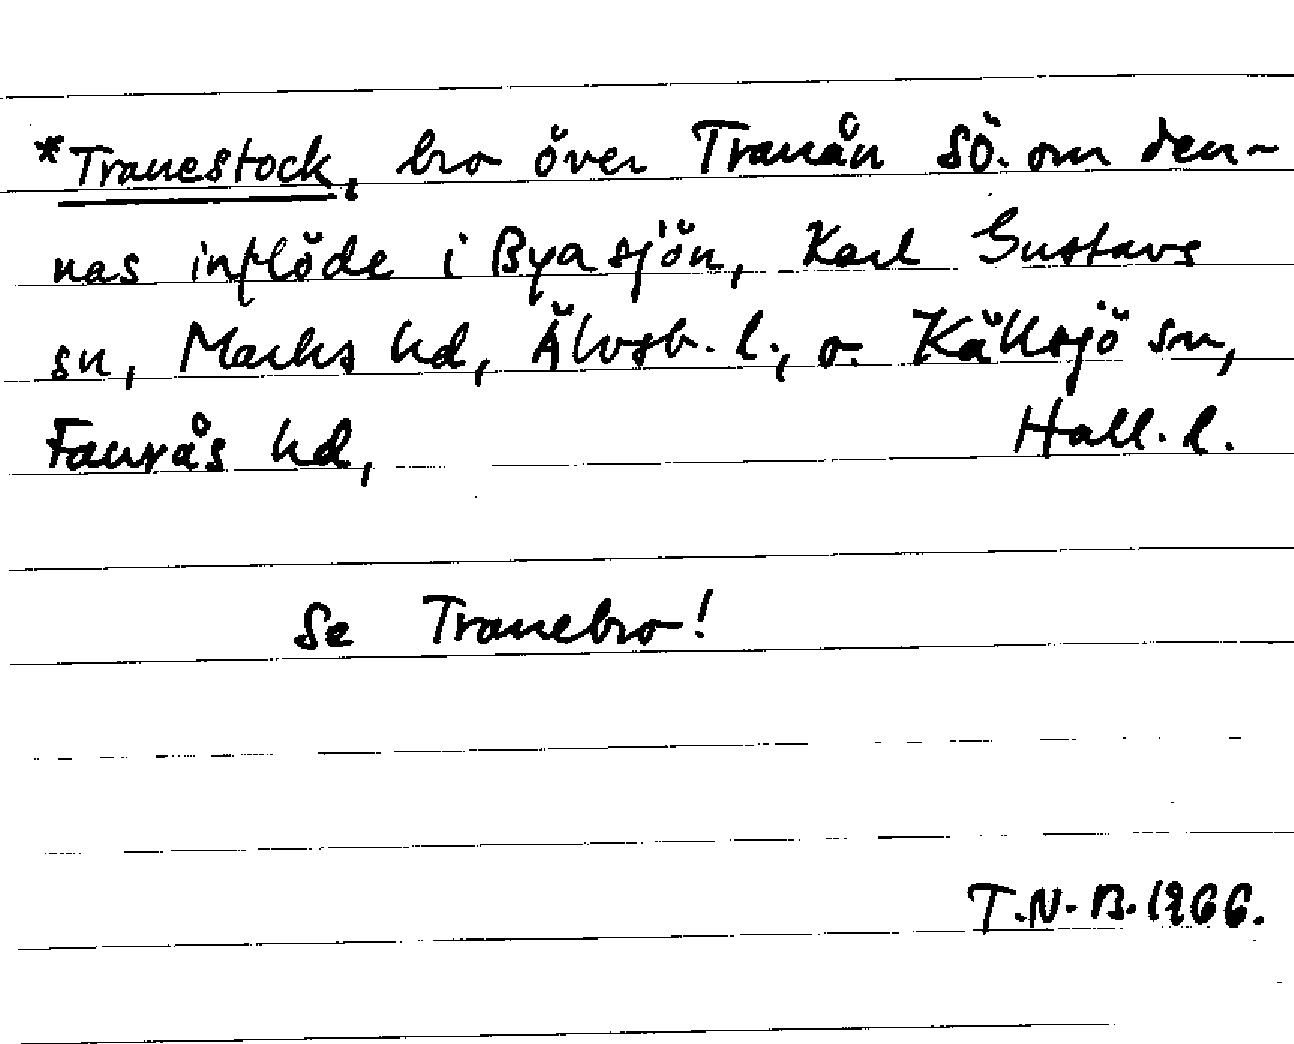 *Tranestock, bro över Tranån sö. om den-
nas inflöde i Byasjön, Karl Gustavs
sn, Marks hd, Älvsb. l., o. Källsjö sn,
Faurås hd, Hall. l.
Se Tranebro!
T.N.B. 1966.